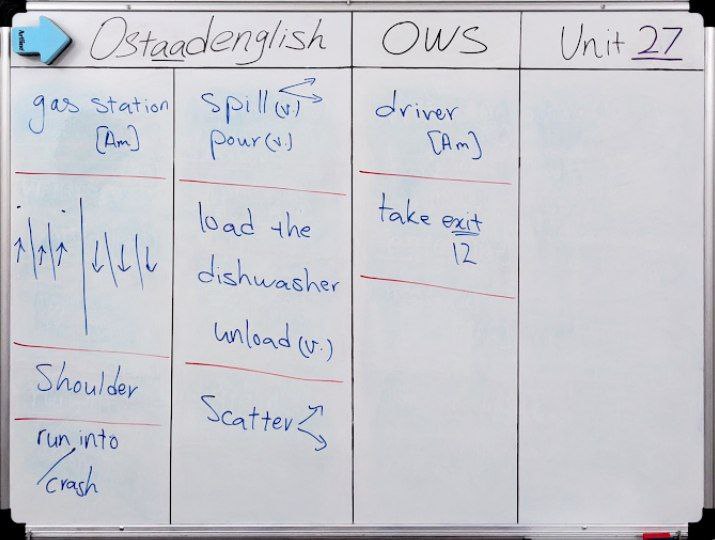 Artline
Ostaadenglish
OWS
Unit 27
gas station
[Am]
Shoulder
run into
/crash
spill (v.)
pour (v.)
load the
dishwasher
unload (v.)
Scatter
driver
[Am]
take exit
12